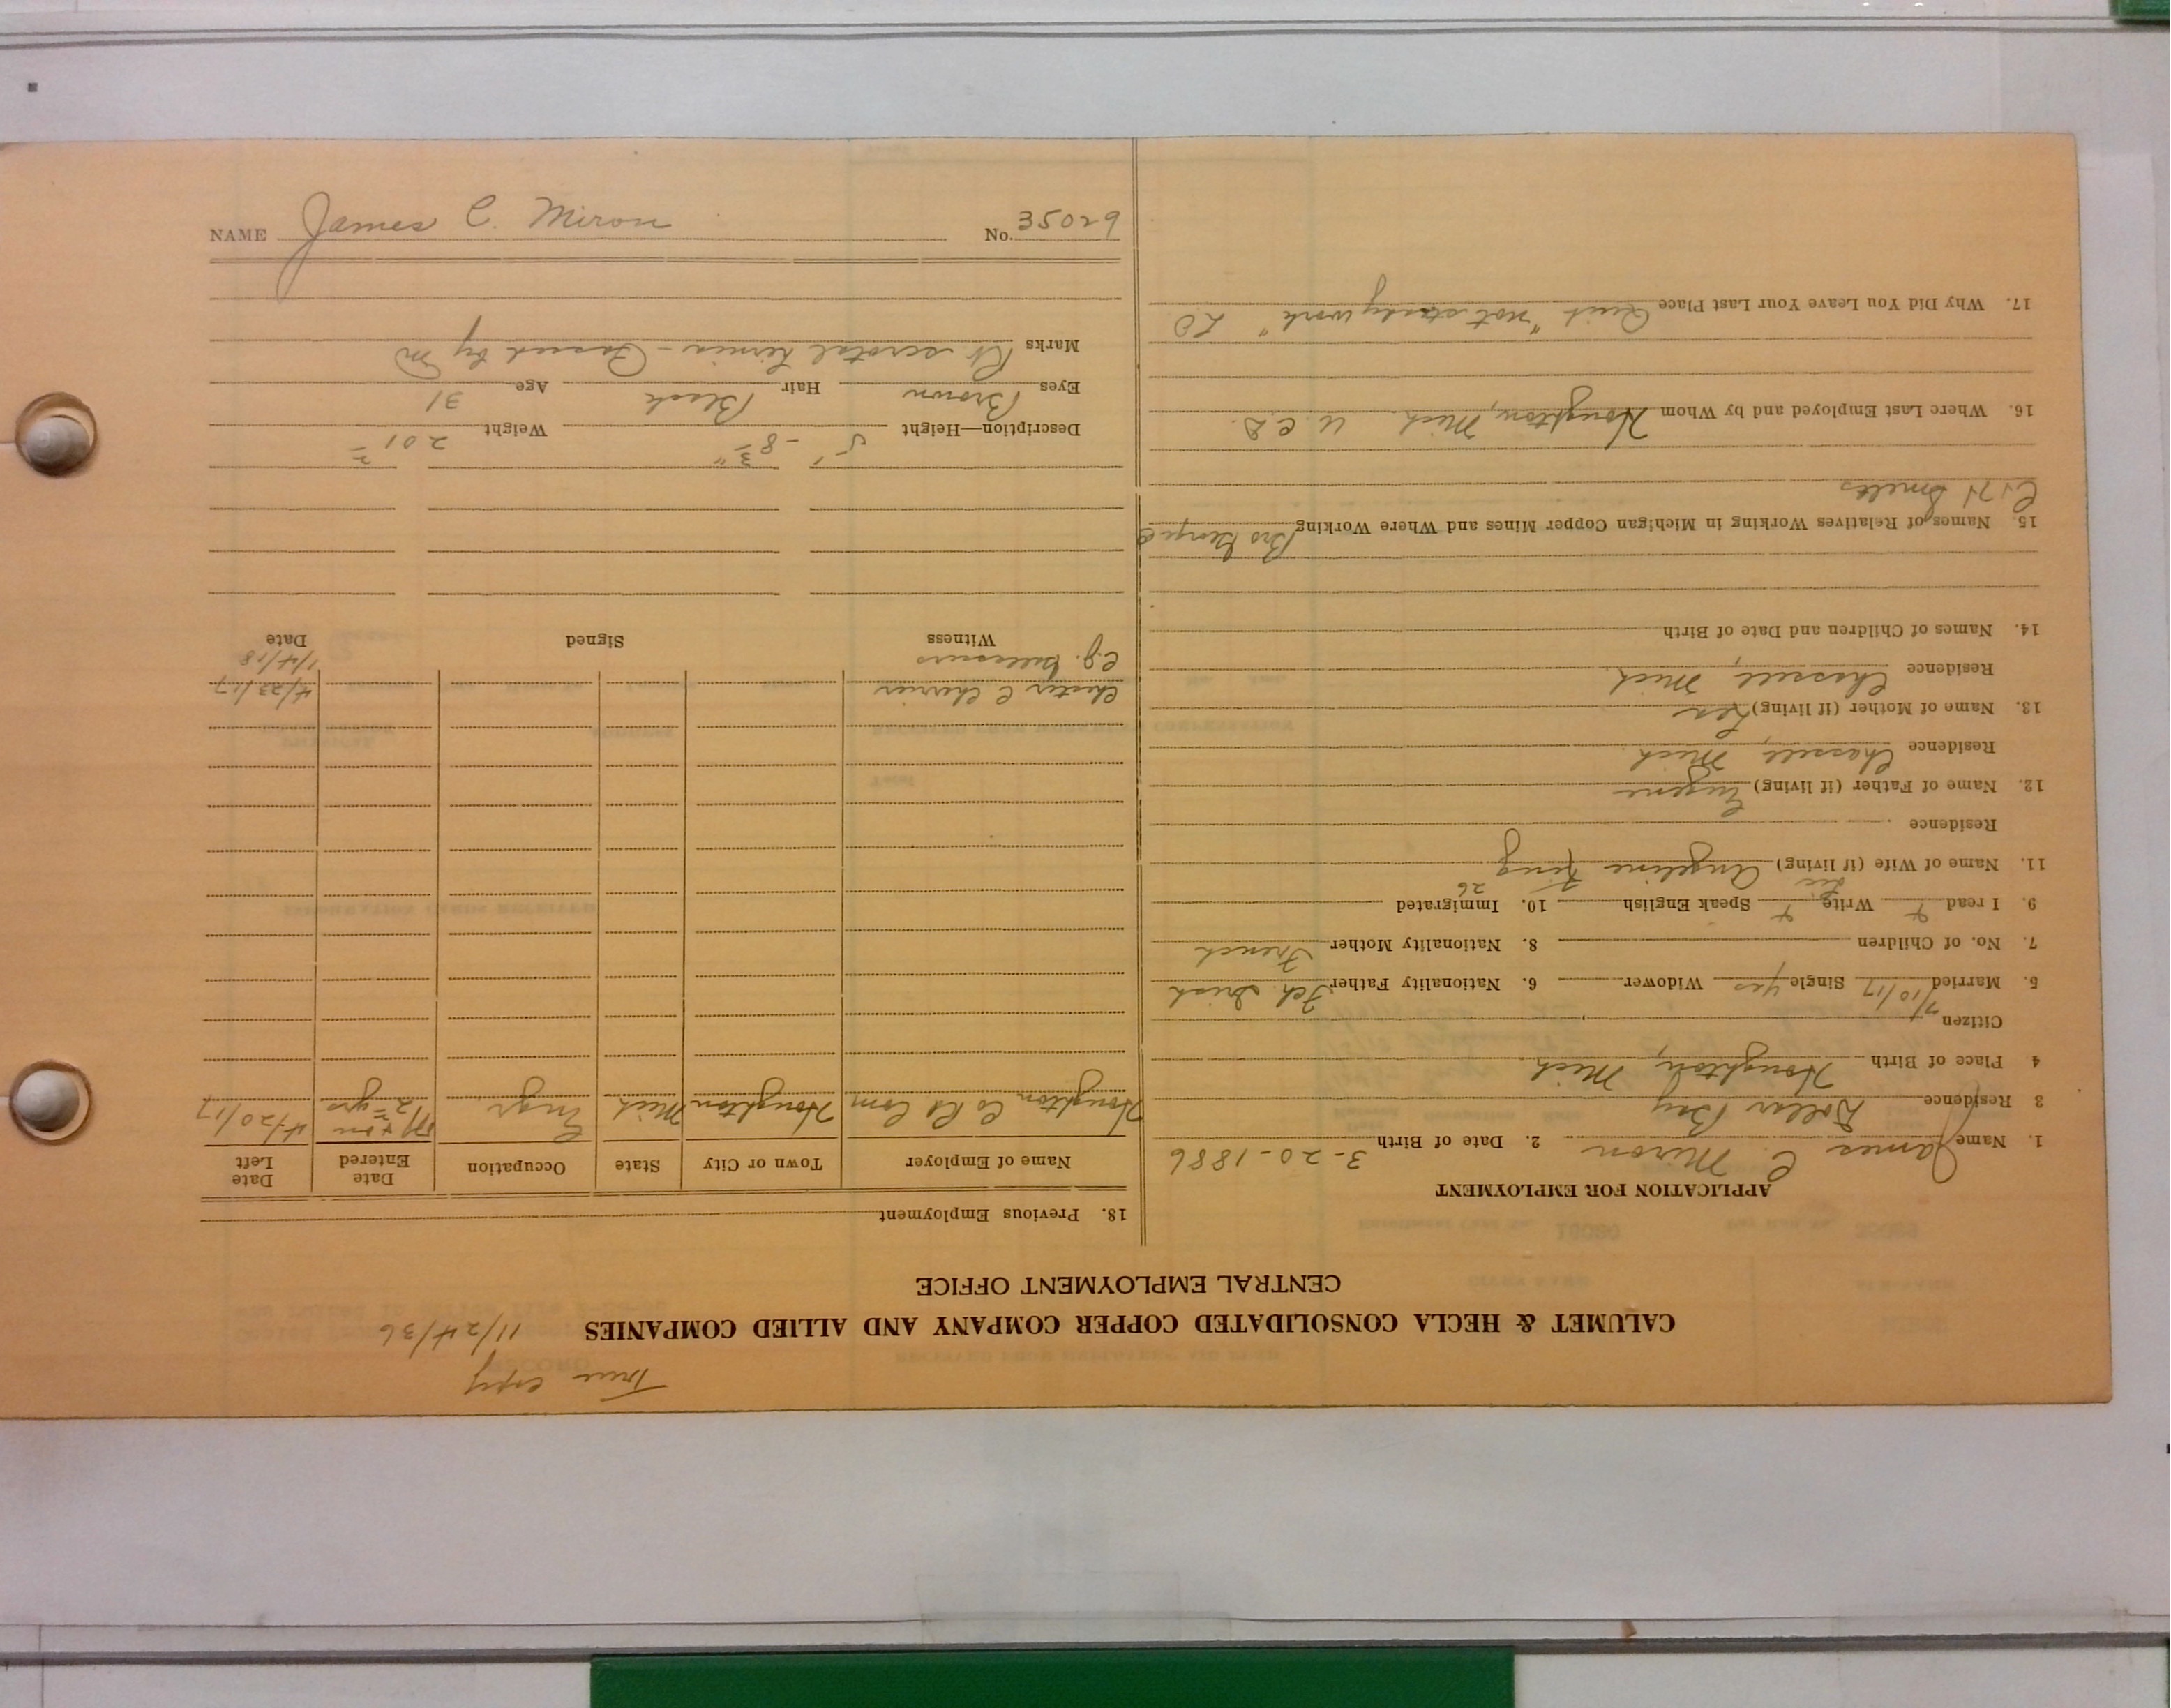 True copy
CALUMET & HECLA CONSOLIDATED COPPER COMPANY AND ALLIED COMPANIES 11/24/36
CENTRAL EMPLOYMENT OFFICE
APPLICATION FOR EMPLOYMENT
1. Name James C. Miron 2. Date of Birth 3-20-1886
3 Residence Dollar Bay
4 Place of Birth Houghton, Mich.
Citizen
5. Married 7/10/17 Single yes Widower 6. Nationality Father Fch. Irish
7. No. of Children 8. Nationality Mother French
9. I read Write Speak English 10. Immigrated
26
11. Name of Wife (if living) Angeline King
Residence
12. Name of Father (if living) Eugene
Residence Chassell, Mich.
13. Name of Mother (if living)
Residence Chassell, Mich.
14. Names of Children and Date of Birth
15. Names of Relatives Working in Michigan Copper Mines and Where Working Bro George
C & H Smelts
16. Where Last Employed and by Whom Houghton, Mich.
17. Why Did You Leave Your Last Place Quit "not steady work"
18. Previous Employment
Name of Employer Town or City State Occupation Date Entered Date Left
Houghton Co Rd Com Houghton Mich Engr. 4/20/17
Chester C Chervier 4/23/17
C.J. 1/4/18
Witness Signed Date
Description—Height 5' - 8 3" Weight 201
Eyes Brown Hair Black Age 31
Marks Rt scrotal hernia - Passed by
NAME James C. Miron No. 35029